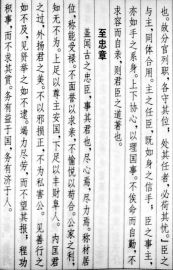 也。故分官列职，各守其位，处其任者，必荷其忧。臣之
与主，同体合用。主之任臣，既如身之信手，臣之事主，
亦如手之系身。上下协心，以理国事，不俟命而自勤，不
求容而自亲，则君臣之道著也。
至忠章
盖闻古之忠臣，事其君也，尽心焉，尽力焉。称材居
位，称能受禄。不面誉以求亲，不愉悦以苟合。公家之利，
知无不为。上足以尊主安国，下足以丰财阜人。内匡君
之过，外扬君之美。不以邪损正，不为私害公。见善行之
如不及，见贤举之如不逮。竭力尽劳，而不望其报，程功
积事，而不求其赏。务有益于国，务有济于人。